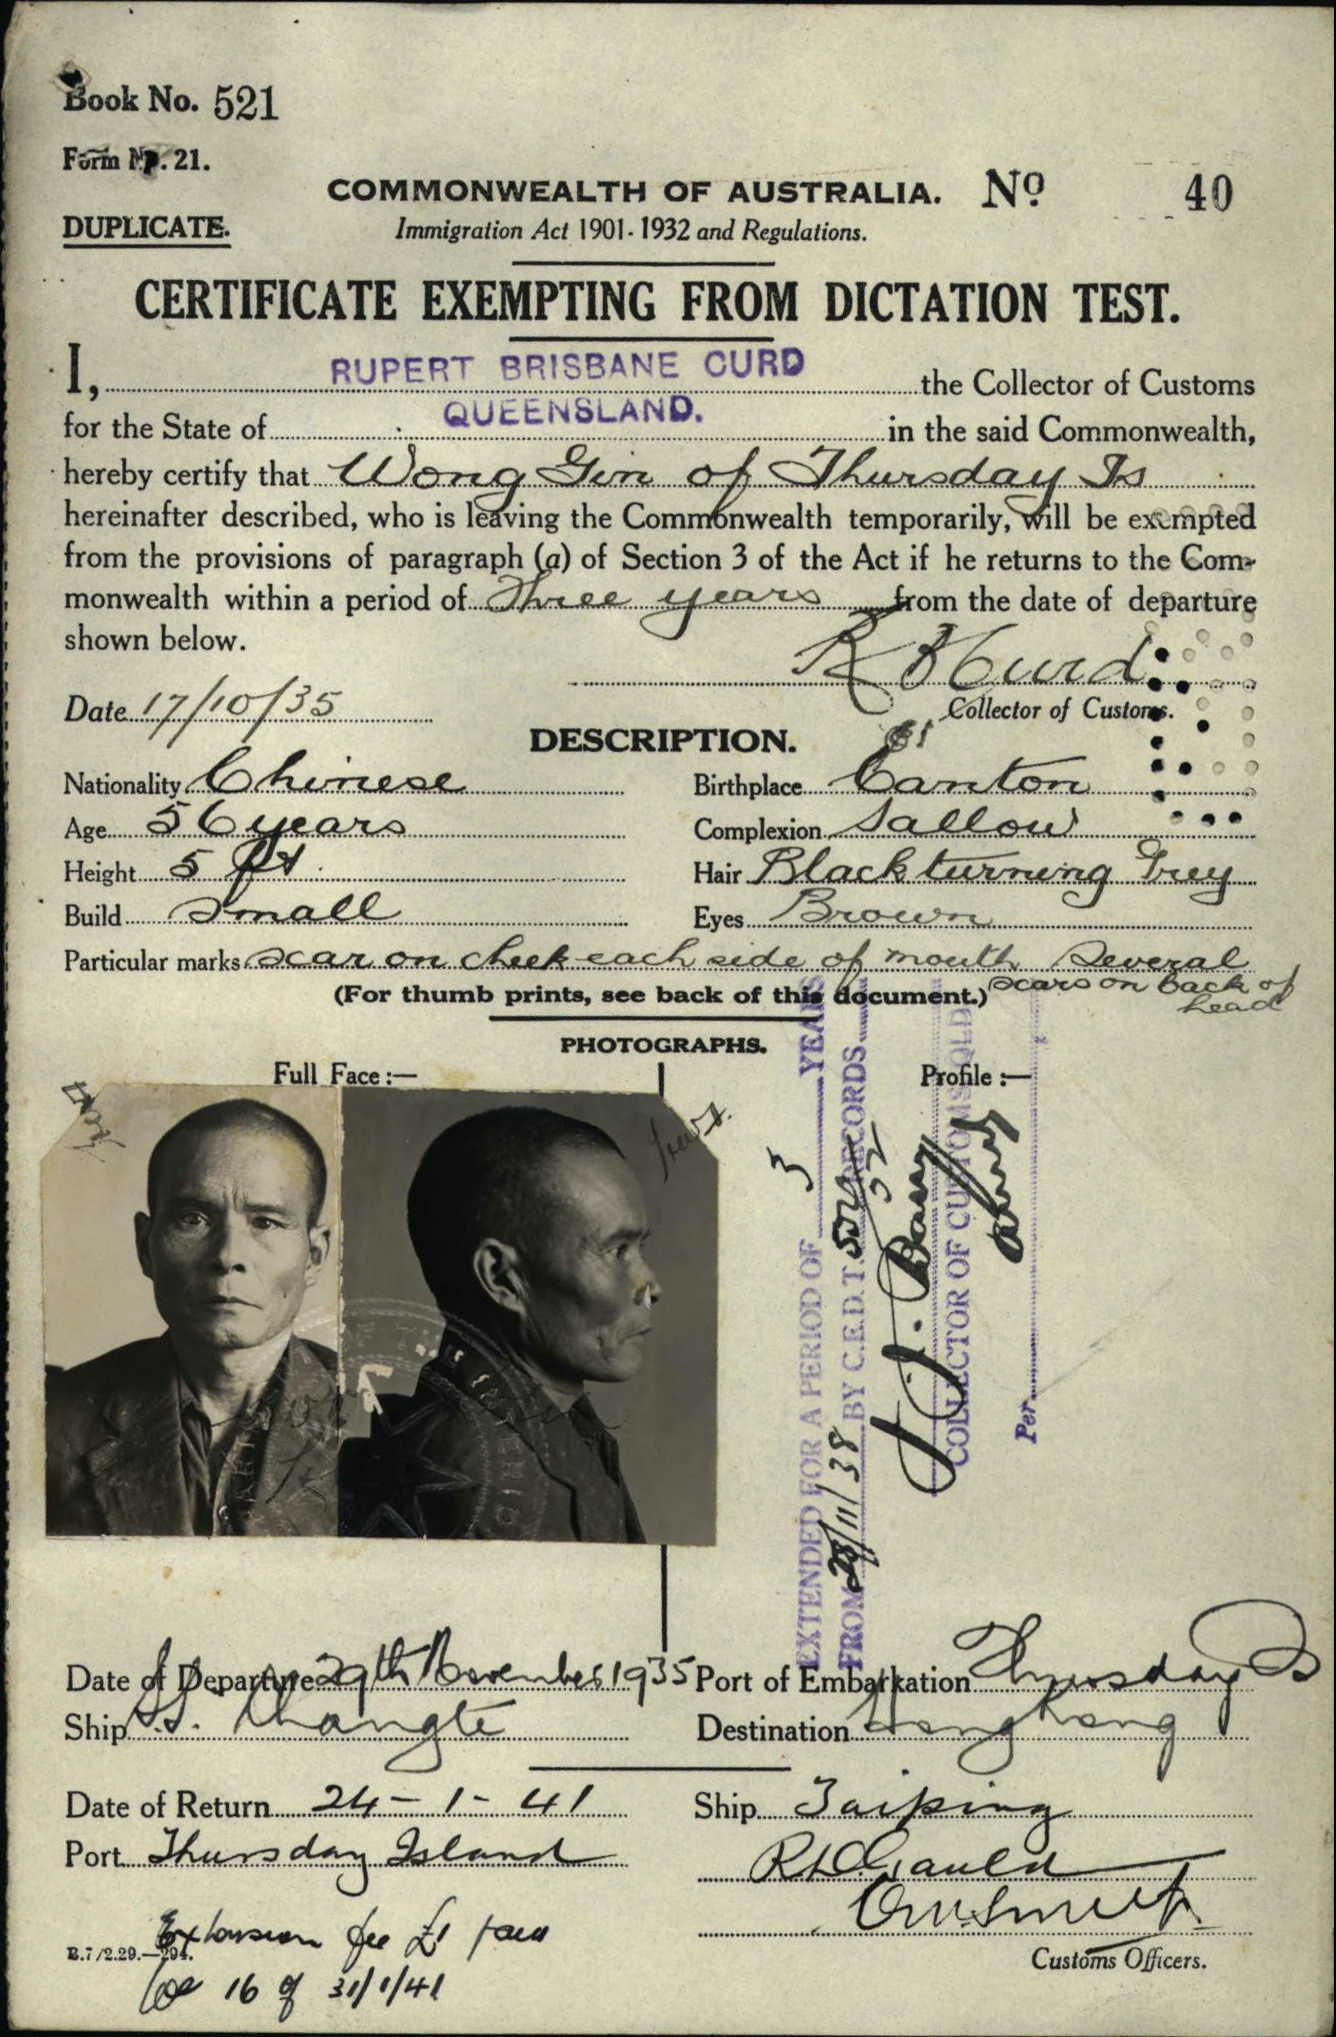 Book No. 521
Form No. 21.
COMMONWEALTH OF AUSTRALIA. No 40
DUPLICATE.
Immigration Act 1901-1932 and Regulations.
CERTIFICATE EXEMPTING FROM DICTATION TEST.
I, RUPERT BRISBANE CURD the Collector of Customs
for the State of QUEENSLAND. in the said Commonwealth,
hereby certify that Wong Gin of Thursday Is
hereinafter described, who is leaving the Commonwealth temporarily, will be exempted
from the provisions of paragraph (a) of Section 3 of the Act if he returns to the Com-
monwealth within a period of Three years from the date of departure
shown below.
R B Curd
Date 17/10/35
Collector of Customs.
DESCRIPTION.
Nationality Chinese
Birthplace Canton
Age 56 years
Complexion Sallow
Height 5 ft
Hair Black turning Grey
Build Small
Eyes Brown
Particular marks scar on cheek each side of mouth Several
scars on back of
head
(For thumb prints, see back of this document.)
PHOTOGRAPHS.
Full Face :—
Profile :—
EXTENDED FOR A PERIOD OF 3 YEARS
FROM 28/11/38 BY C.E.D.T. RECORDS
COLLECTOR OF CUSTOMS QLD
Per
Date of Departure 29th November 1935
Port of Embarkation Thursday Is
Ship S.S. Changte
Destination Hong Kong
Date of Return 24-1-41
Ship Taiping
Port Thursday Island
Extension fee £1 paid
16 of 31/1/41
E.7/2.29.—294.
Customs Officers.